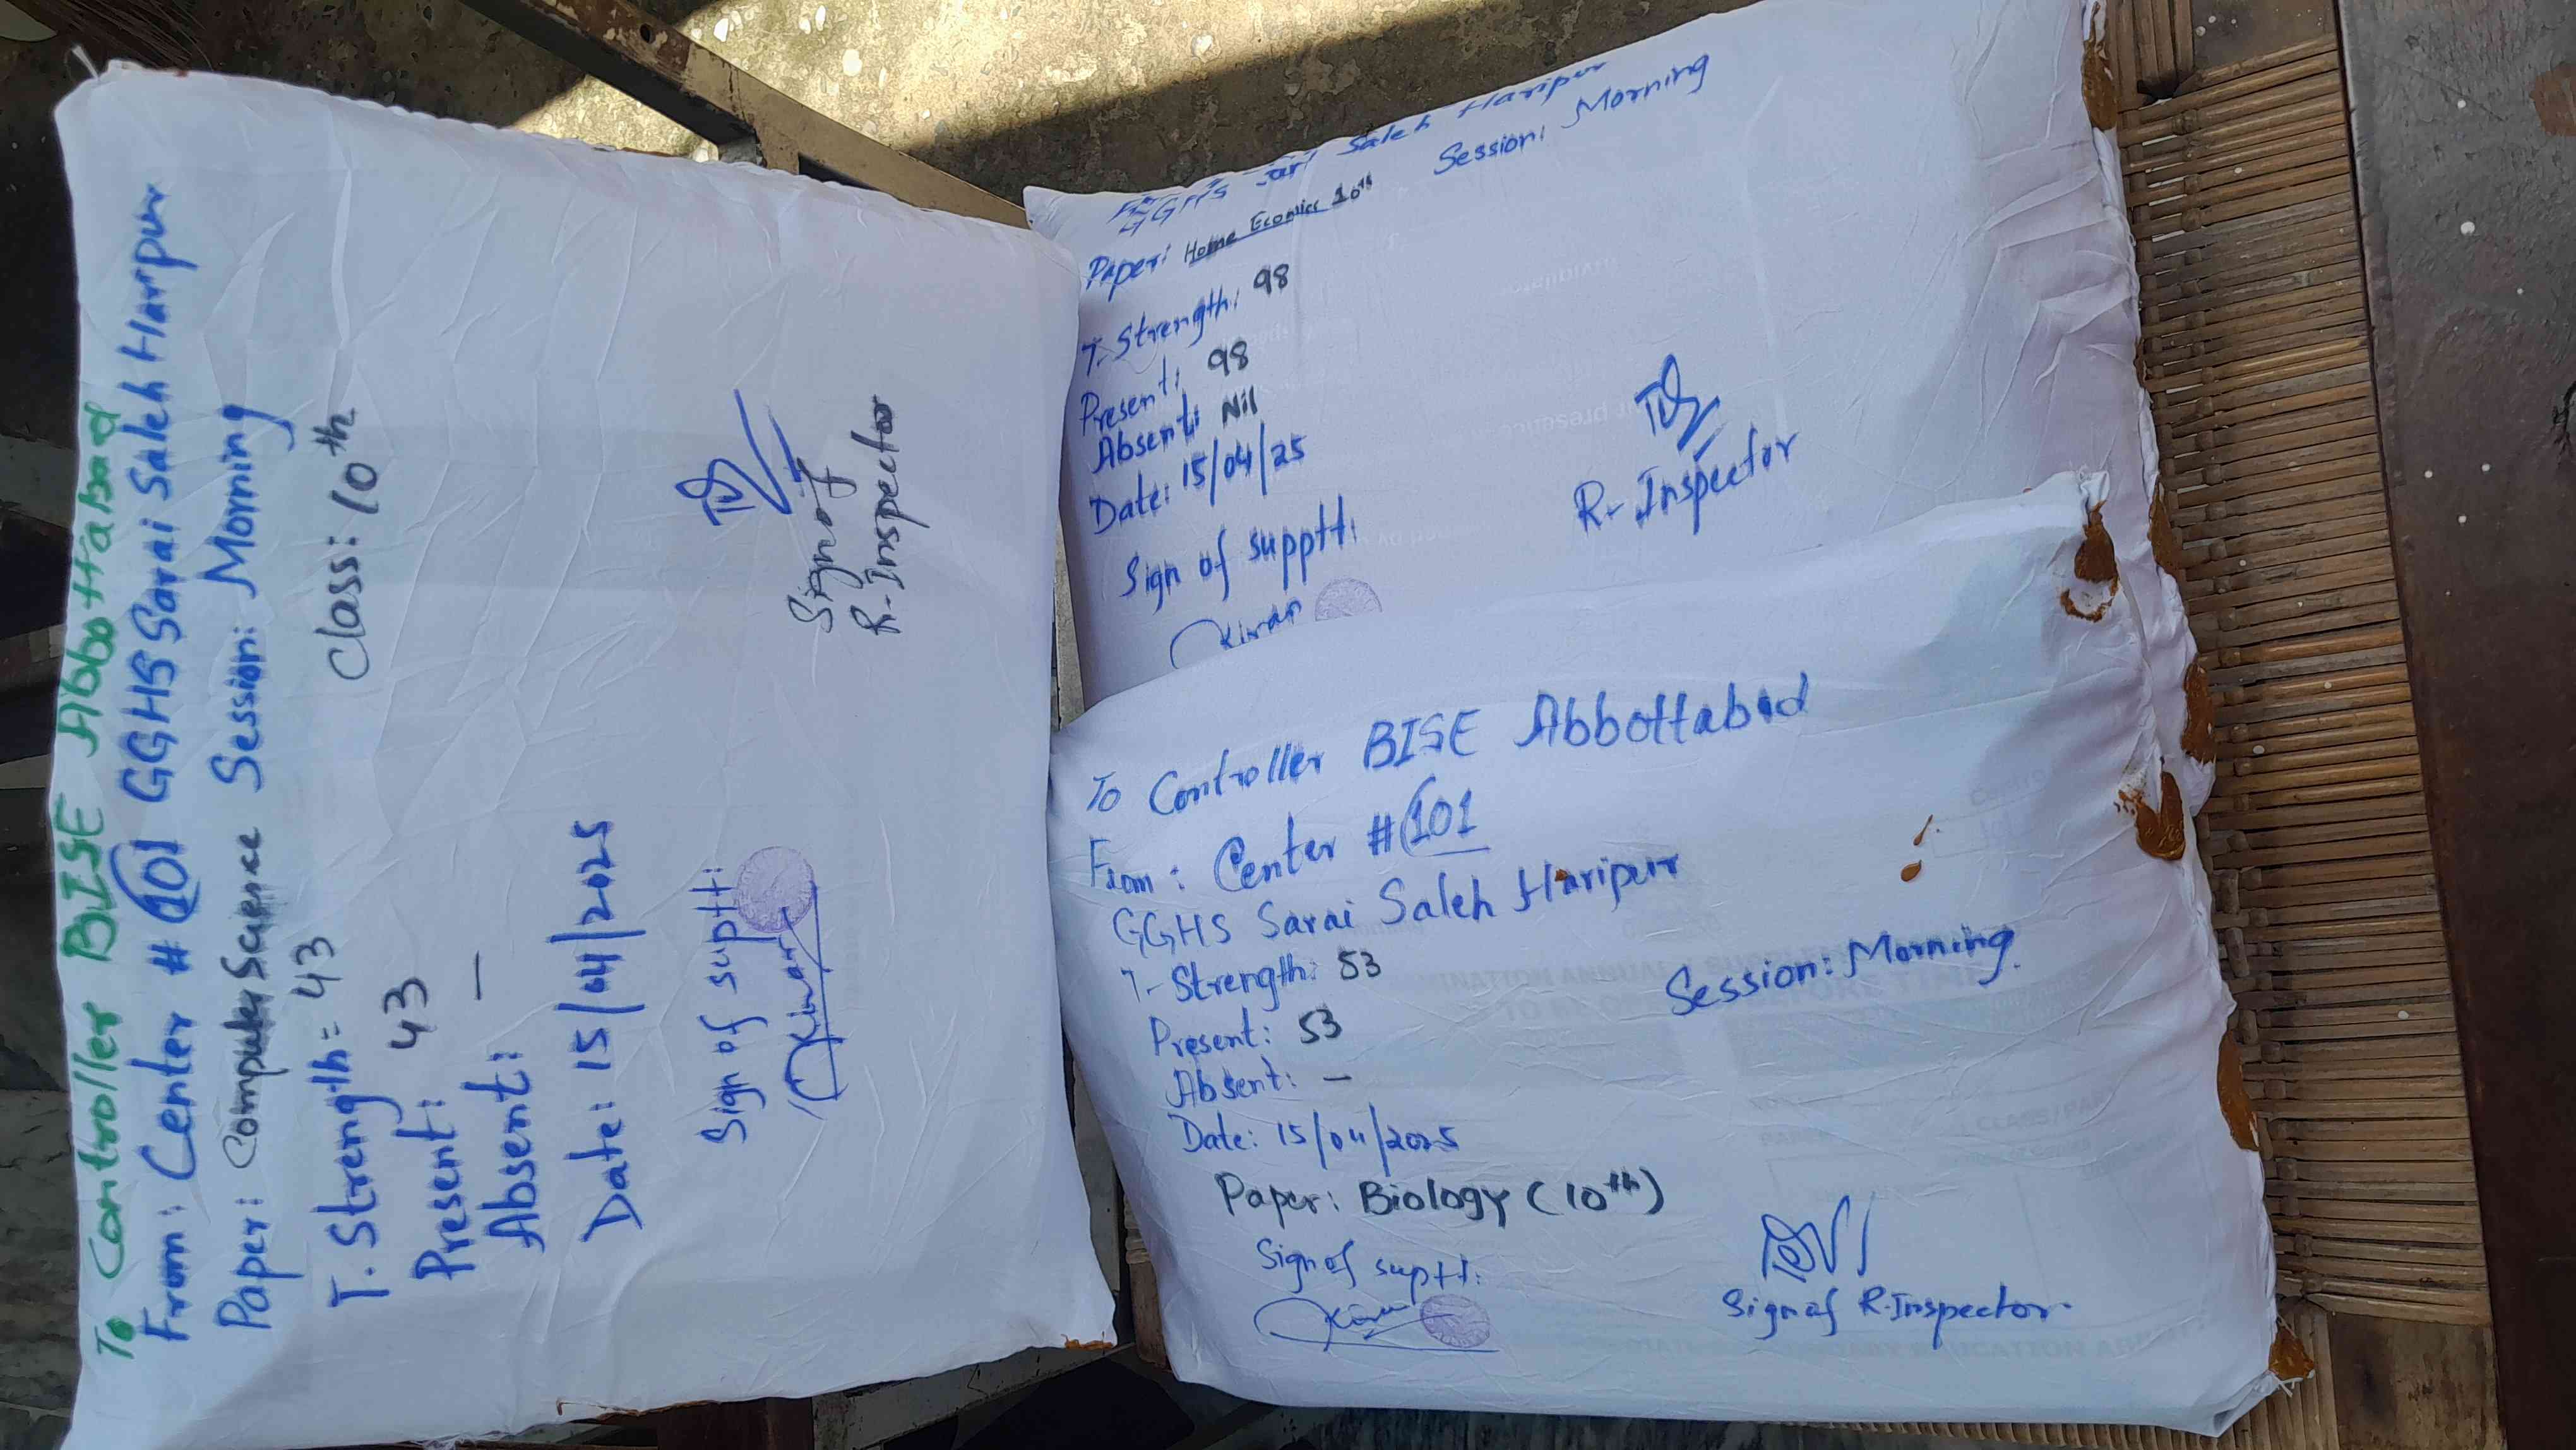 To Controller BISE Abbottabad
From: Center # 101 GGHS Sarai Saleh Haripur
Paper: Computer Science Session: Morning
T. Strength = 43 Class: 10th
Present: 43
Absent: —
Date: 15/04/2025
Sign of suptt:
Kiran
Sign of
R-Inspector
GGHS Sari Saleh Haripur
Paper: Home Ecomics 10th Session: Morning
T. Strength: 98
Present: 98
Absent: Nil
Date: 15/04/25
Sign of supptt:
Kiran
R- Inspector
To Controller BISE Abbottabad
From: Center # 101
GGHS Sarai Saleh Haripur
T- Strength: 53
Session: Morning.
Present: 53
Absent: —
Date: 15/04/2025
Paper: Biology (10th)
Sign of suptt:
Kiran
Sign of R.Inspector.